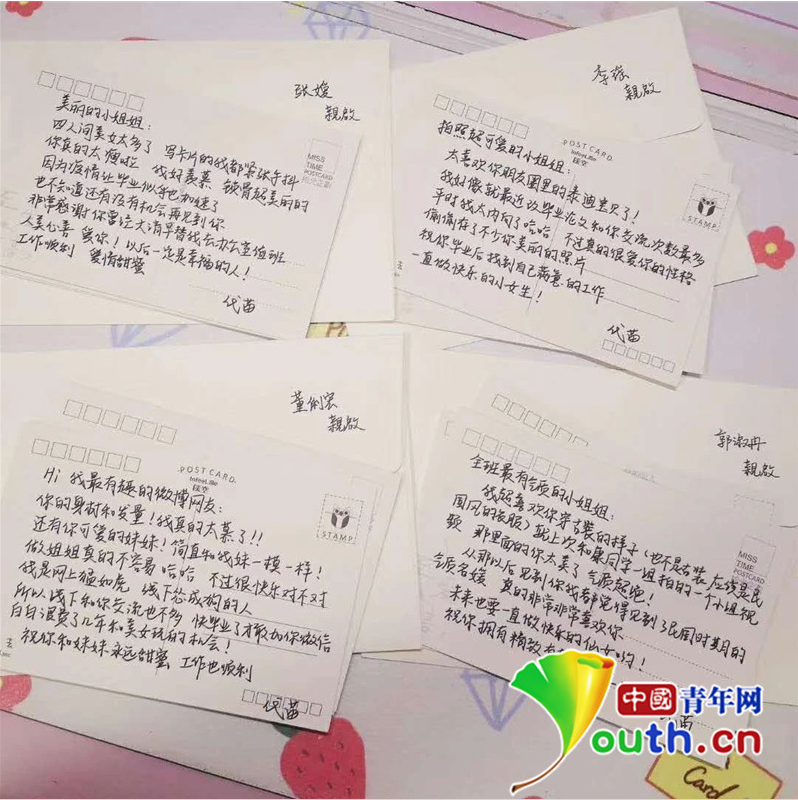 张媛
親啟
美丽的小姐姐:
四人间美女太多了 写卡片的我都紧张手抖
你真的太瘦啦 我好羡慕 锁骨超美的
因为疫情让毕业似乎也加速了
也不知道还有没有机会再见到你
非常感谢你曾经大清早替我去办公室值班
人美心善 爱你!以后一定是幸福的人!
工作顺利 爱情甜蜜
代苗
MISS
TIME
POSTCARD
李
親啟
POSTCARD
拍照超可爱的小姐姐:
太喜欢你朋友圈里的泰迪宝贝了!
我好像就最近改毕业论文和你交流次数最多
平时我太内向了哈哈 不过真的很爱你的性格
偷偷存了不少你美丽的照片
祝你毕业后找到自己满意的工作
一直做快乐的小女生!
代苗
STAMP
董
親啟
POSTCARD
Hi 我最有趣的微博网友:
你的身材和发量!我真的太慕了!!
还有你可爱的妹妹!简直和我妹一模一样!
做姐姐真的不容易 哈哈 不过很快乐对不对
我是网上猛如虎 线下怂成狗的人
所以线下和你交流也不多 快毕业了才敢加你微信
白白浪费了几年和美女玩的机会!
祝你和妹妹永远甜蜜 工作也顺利
代苗
STAMP
郭淑冉
親啟
全班最有气质的小姐姐:
我超喜欢你穿古装的样子(也不是古装 应该是民
国风的衣服)就上次和康同学一组拍的一个小组视
频 那里面的你太美了 气质超绝!
从那以后见到你我都觉得见到了民国时期的
气质名媛 真的非常非常喜欢你
未来也要一直做快乐的仙女哟!
祝你拥有精致
苗
MISS
TIME
POSTCARD
中國青年网
youth.cn
Card